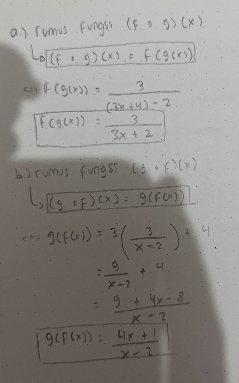 a.) rumus fungsi (f o g)(x)
(f o g)(x) = f(g(x))
f(g(x)) = 3 / (3x+4) - 2
f(g(x)) = 3 / 3x + 2
b.) rumus fungsi (g o f)(x)
(g o f)(x) = g(f(x))
g(f(x)) = 3 (3 / x-2) + 4
= 9 / x-2 + 4
= 9 + 4x - 8 / x - 2
g(f(x)) = 4x + 1 / x - 2